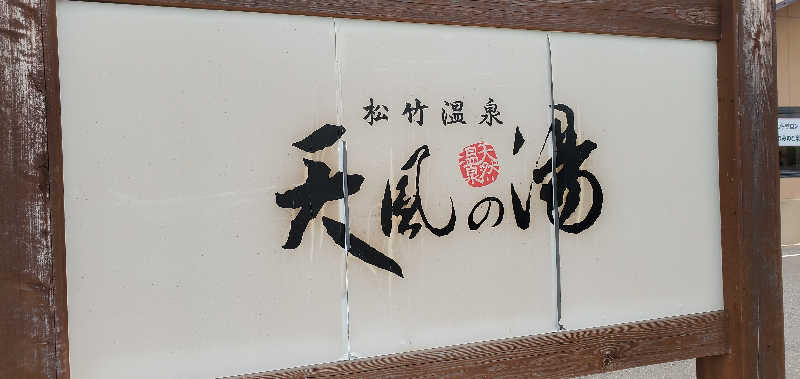 松竹温泉
天然
温泉
天風の湯